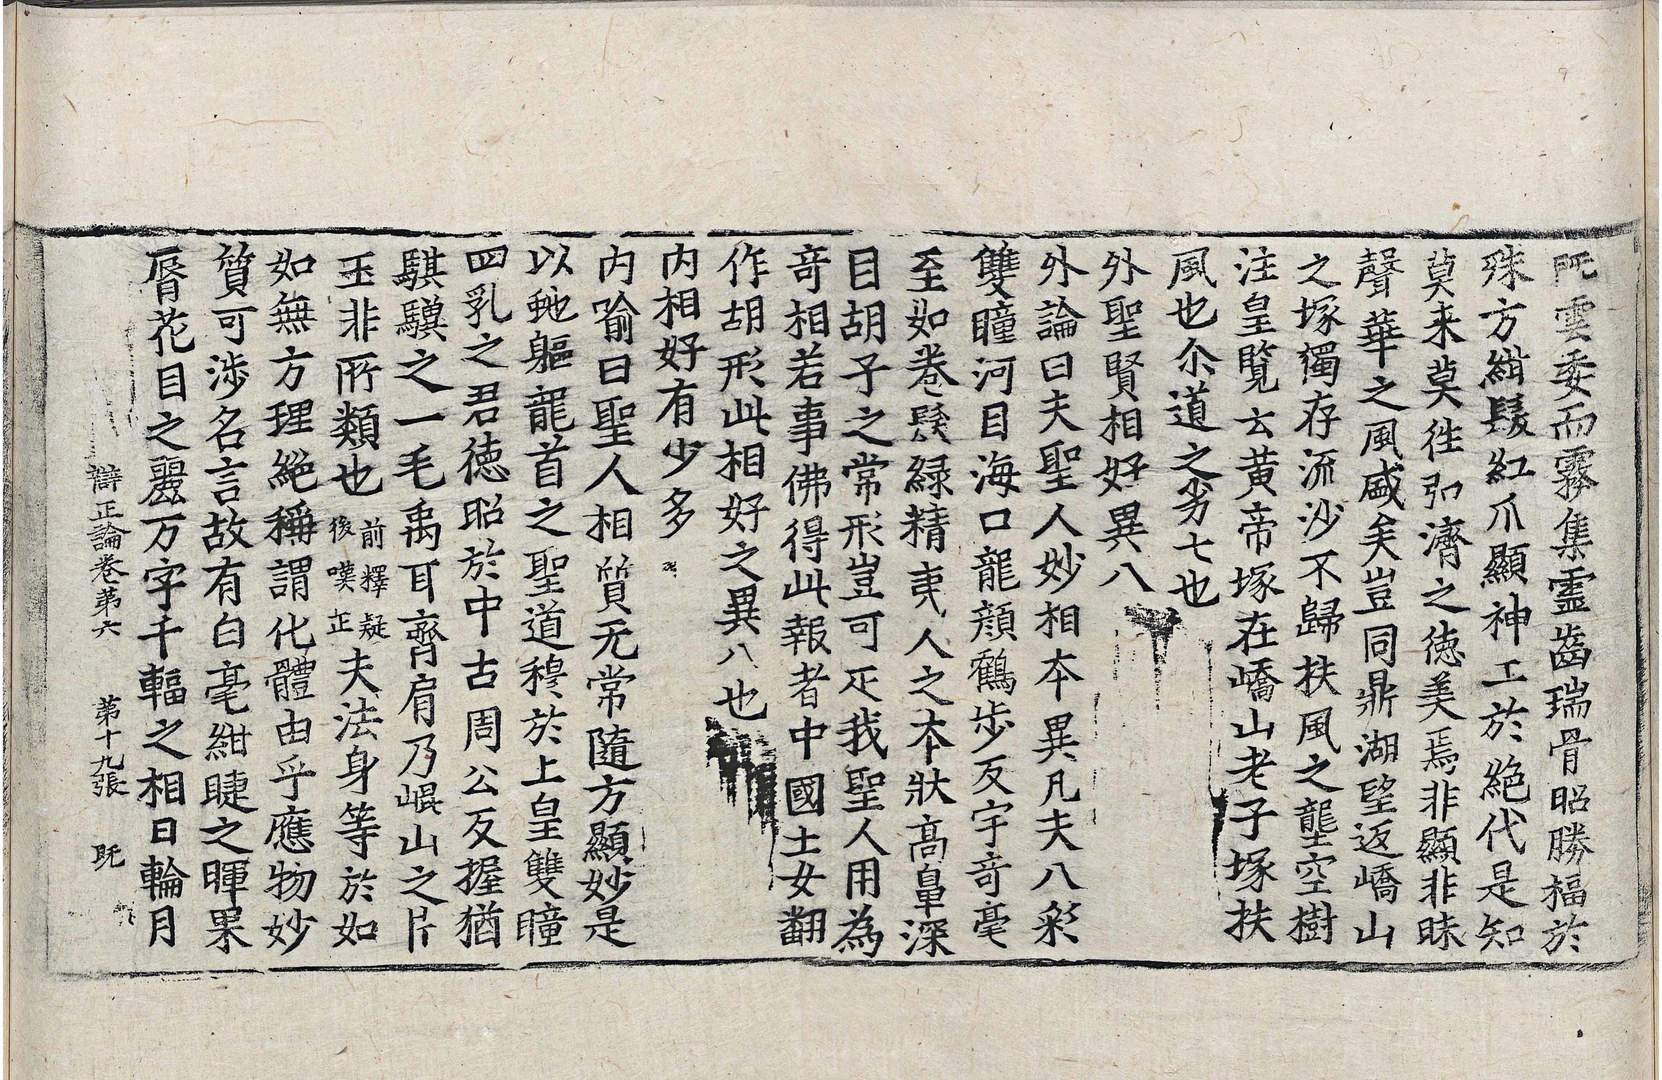 旣雲委而霧集靈齒瑞骨昭勝福於
殊方紺髮紅爪顯神工於絶代是知
莫来莫徃弘濟之德美焉非顯非昧
聲華之風盛矣豈同鼎湖望返嶠山
之塚獨存流沙不歸扶風之壟空樹
注皇覧云黃帝塚在嶠山老子塚扶
風也尒道之劣七也
外聖賢相好異八
外論曰夫聖人妙相本異凡夫八彩
雙瞳河目海口龍顔鶴步反宇奇毫
至如卷髮緑精夷人之本狀高鼻深
目胡子之常形豈可疋我聖人用為
奇相若事佛得此報者中國士女翻
作胡形此相好之異八也
内相好有少多
内喻曰聖人相質无常隨方顯妙是
以虵軀龍首之聖道穆於上皇雙瞳
四乳之君德昭於中古周公反握猶
騏驥之一毛禹耳齊肩乃崐山之片
玉非所類也前釋疑後嘆正夫法身等於如
如無方理絶稱謂化體由乎應物妙
質可渉名言故有白毫紺睫之暉果
脣花目之麗万字千輻之相日輪月
辯正論卷第六 第十九張 旣